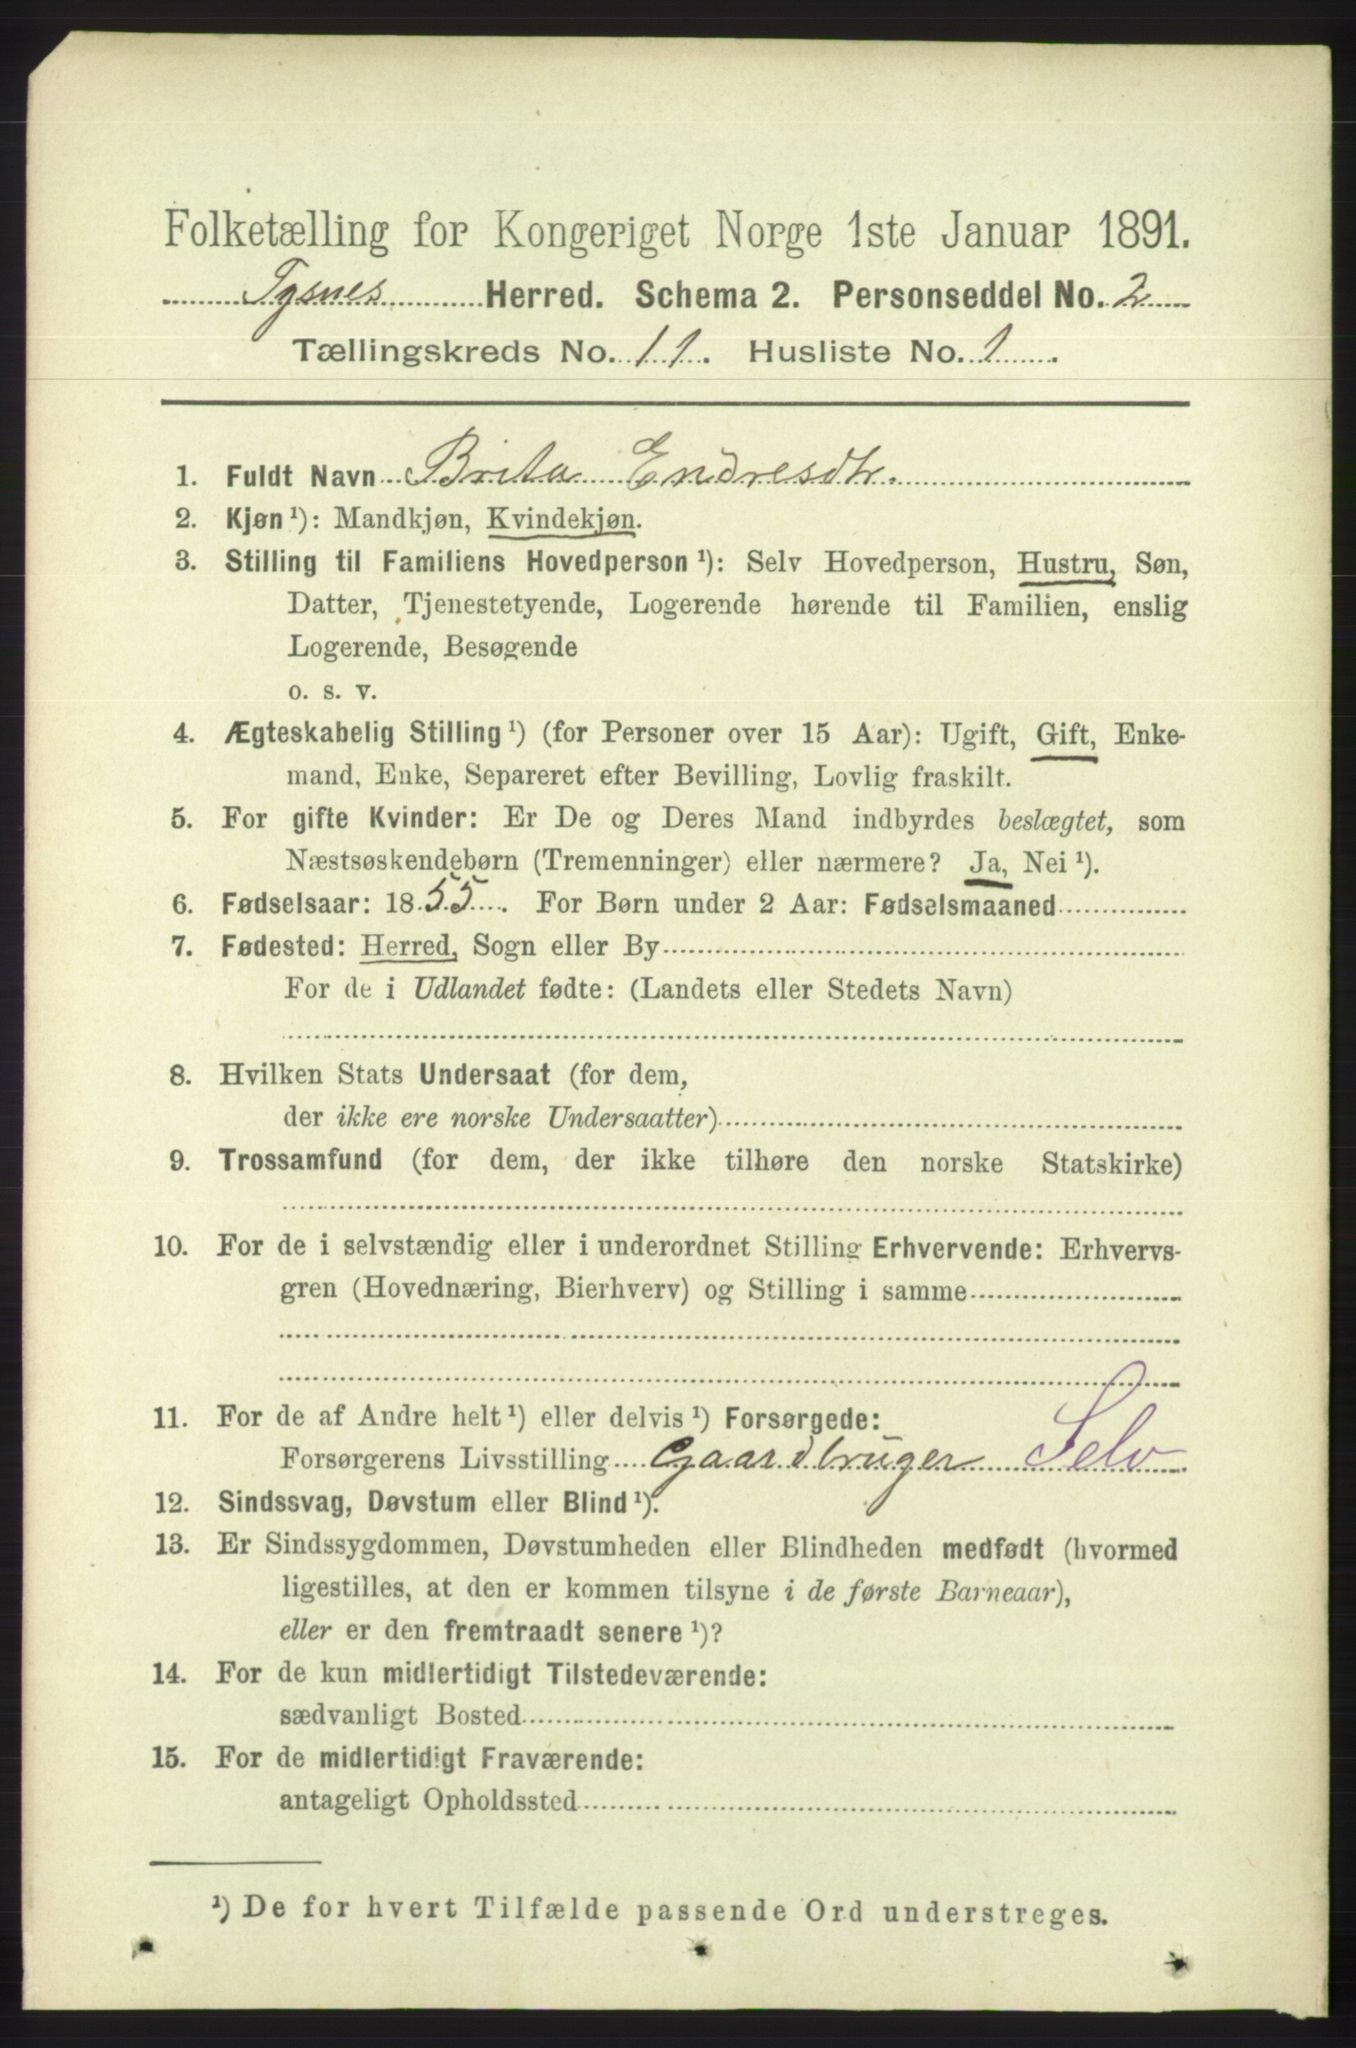 Folketælling for Kongeriget Norge 1ste Januar 1891.
Tysnes Herred. Schema 2. Personseddel No. 2
Tællingskreds No. 11. Husliste No. 1.
1. Fuldt Navn Brita Endresdtr.
2. Kjøn ¹): Mandkjøn, Kvindekjøn.
3. Stilling til Familiens Hovedperson ¹): Selv Hovedperson, Hustru, Søn,
Datter, Tjenestetyende, Logerende hørende til Familien, enslig
Logerende, Besøgende
o. s. v.
4. Ægteskabelig Stilling ¹) (for Personer over 15 Aar): Ugift, Gift, Enke-
mand, Enke, Separeret efter Bevilling, Lovlig fraskilt.
5. For gifte Kvinder: Er De og Deres Mand indbyrdes beslægtet, som
Næstsøskendebørn (Tremenninger) eller nærmere? Ja, Nei ¹).
6. Fødselsaar: 1855. For Børn under 2 Aar: Fødselsmaaned
7. Fødested: Herred, Sogn eller By
For de i Udlandet fødte: (Landets eller Stedets Navn)
8. Hvilken Stats Undersaat (for dem,
der ikke ere norske Undersaatter)
9. Trossamfund (for dem, der ikke tilhøre den norske Statskirke)
10. For de i selvstændig eller i underordnet Stilling Erhvervende: Erhvervs-
gren (Hovednæring, Bierhverv) og Stilling i samme
11. For de af Andre helt ¹) eller delvis ¹) Forsørgede:
Forsørgerens Livsstilling Gaardbruger Selv
12. Sindssvag, Døvstum eller Blind ¹).
13. Er Sindssygdommen, Døvstumheden eller Blindheden medfødt (hvormed
ligestilles, at den er kommen tilsyne i de første Barneaar),
eller er den fremtraadt senere ¹)?
14. For de kun midlertidigt Tilstedeværende:
sædvanligt Bosted
15. For de midlertidigt Fraværende:
antageligt Opholdssted
¹) De for hvert Tilfælde passende Ord understreges.